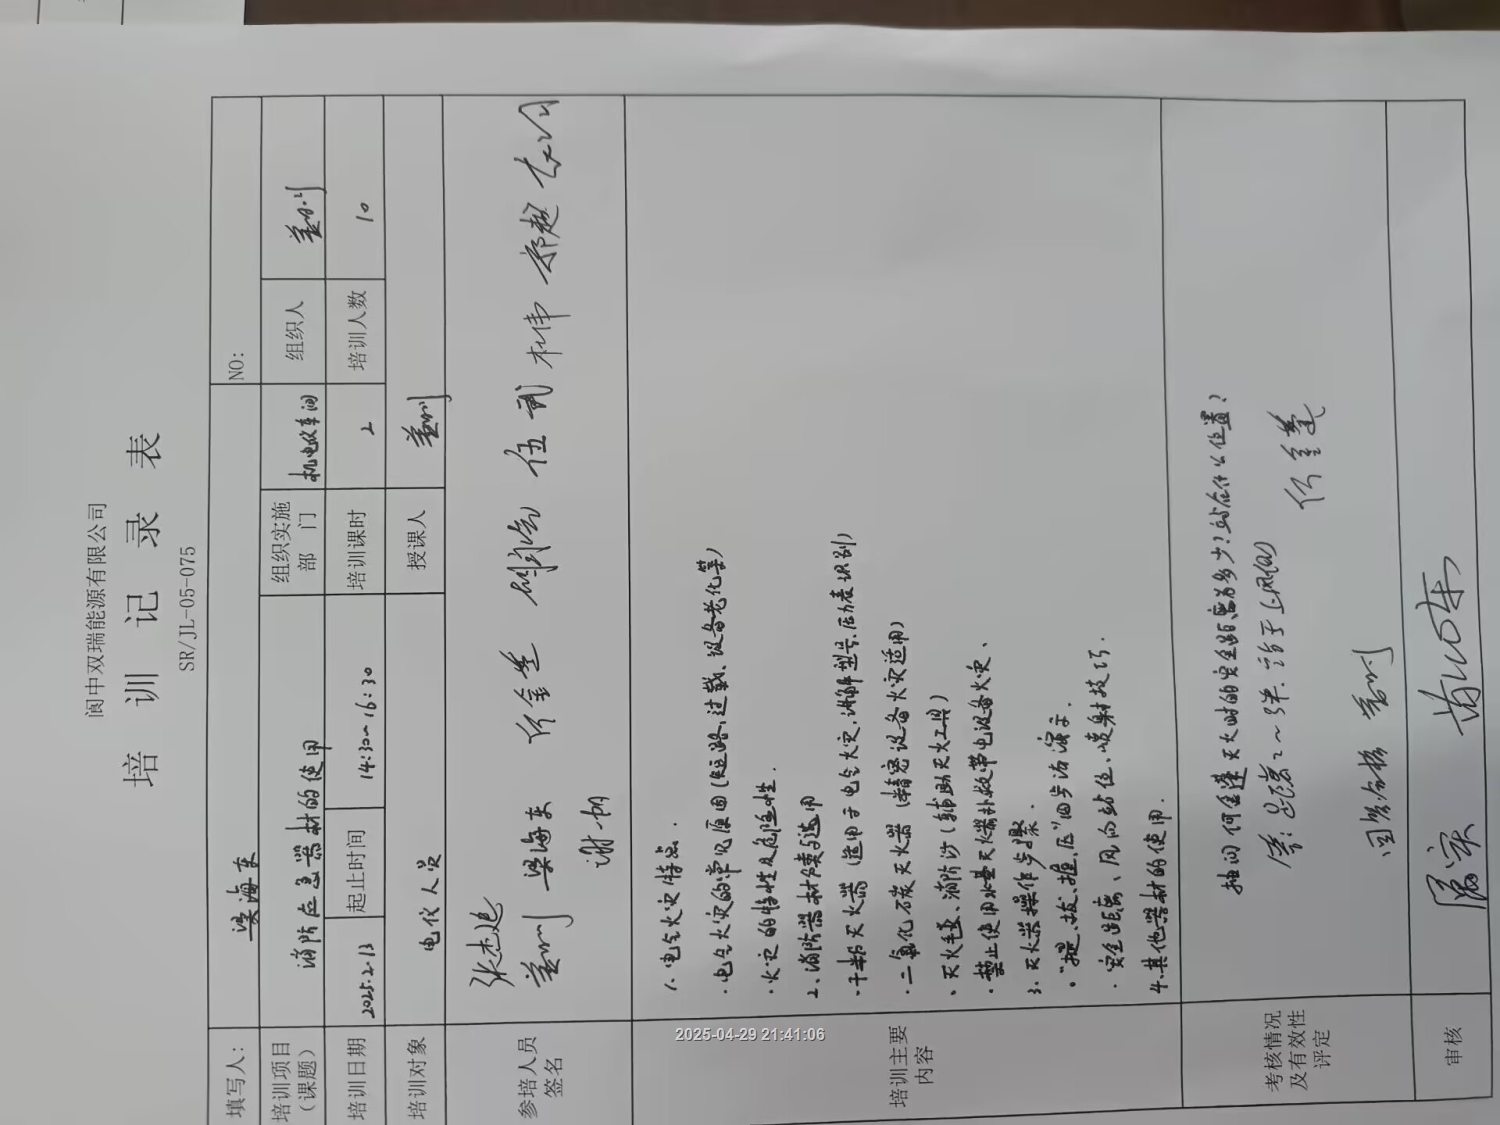 阆中双瑞能源有限公司
培 训 记 录 表
SR/JL-05-075
填写人： 梁海东 NO:
培训项目（课题） 消防应急器材的使用 组织实施部门 机电仪车间 组织人 姜川
培训日期 2025.2.13 起止时间 14:30~16:30 培训课时 2 培训人数 10
培训对象 电仪人员 授课人 姜川
参培人员签名 张杰追 何金蓬 伍武 杜伟 郑越
姜川 梁海东 谢
培训主要内容
1. 电气火灾特点.
· 电气火灾的常见原因(短路,过载、设备老化等)
· 火灾的特性及危险性.
2、消防器材种类与选用
· 干粉灭火器 (适用于电气火灾,讲解型号.压力表识别)
· 二氧化碳灭火器 (精密设备火灾适用)
、灭火毛毯、消防沙 (辅助灭火工具)
· 禁止使用水基灭火器扑救带电设备火灾、
3. 灭火器操作步骤.
· "提、拔、握、压"四步法演示.
· 安全距离、风向站位、喷射技巧.
4.其他器材的使用.
考核情况及有效性评定
抽问何金蓬灭火时的安全距离为多少?站在什么位置?
答: 距离2~3米.站于上风向 何金蓬
回答合格 姜川
审核
2025-04-29 21:41:06